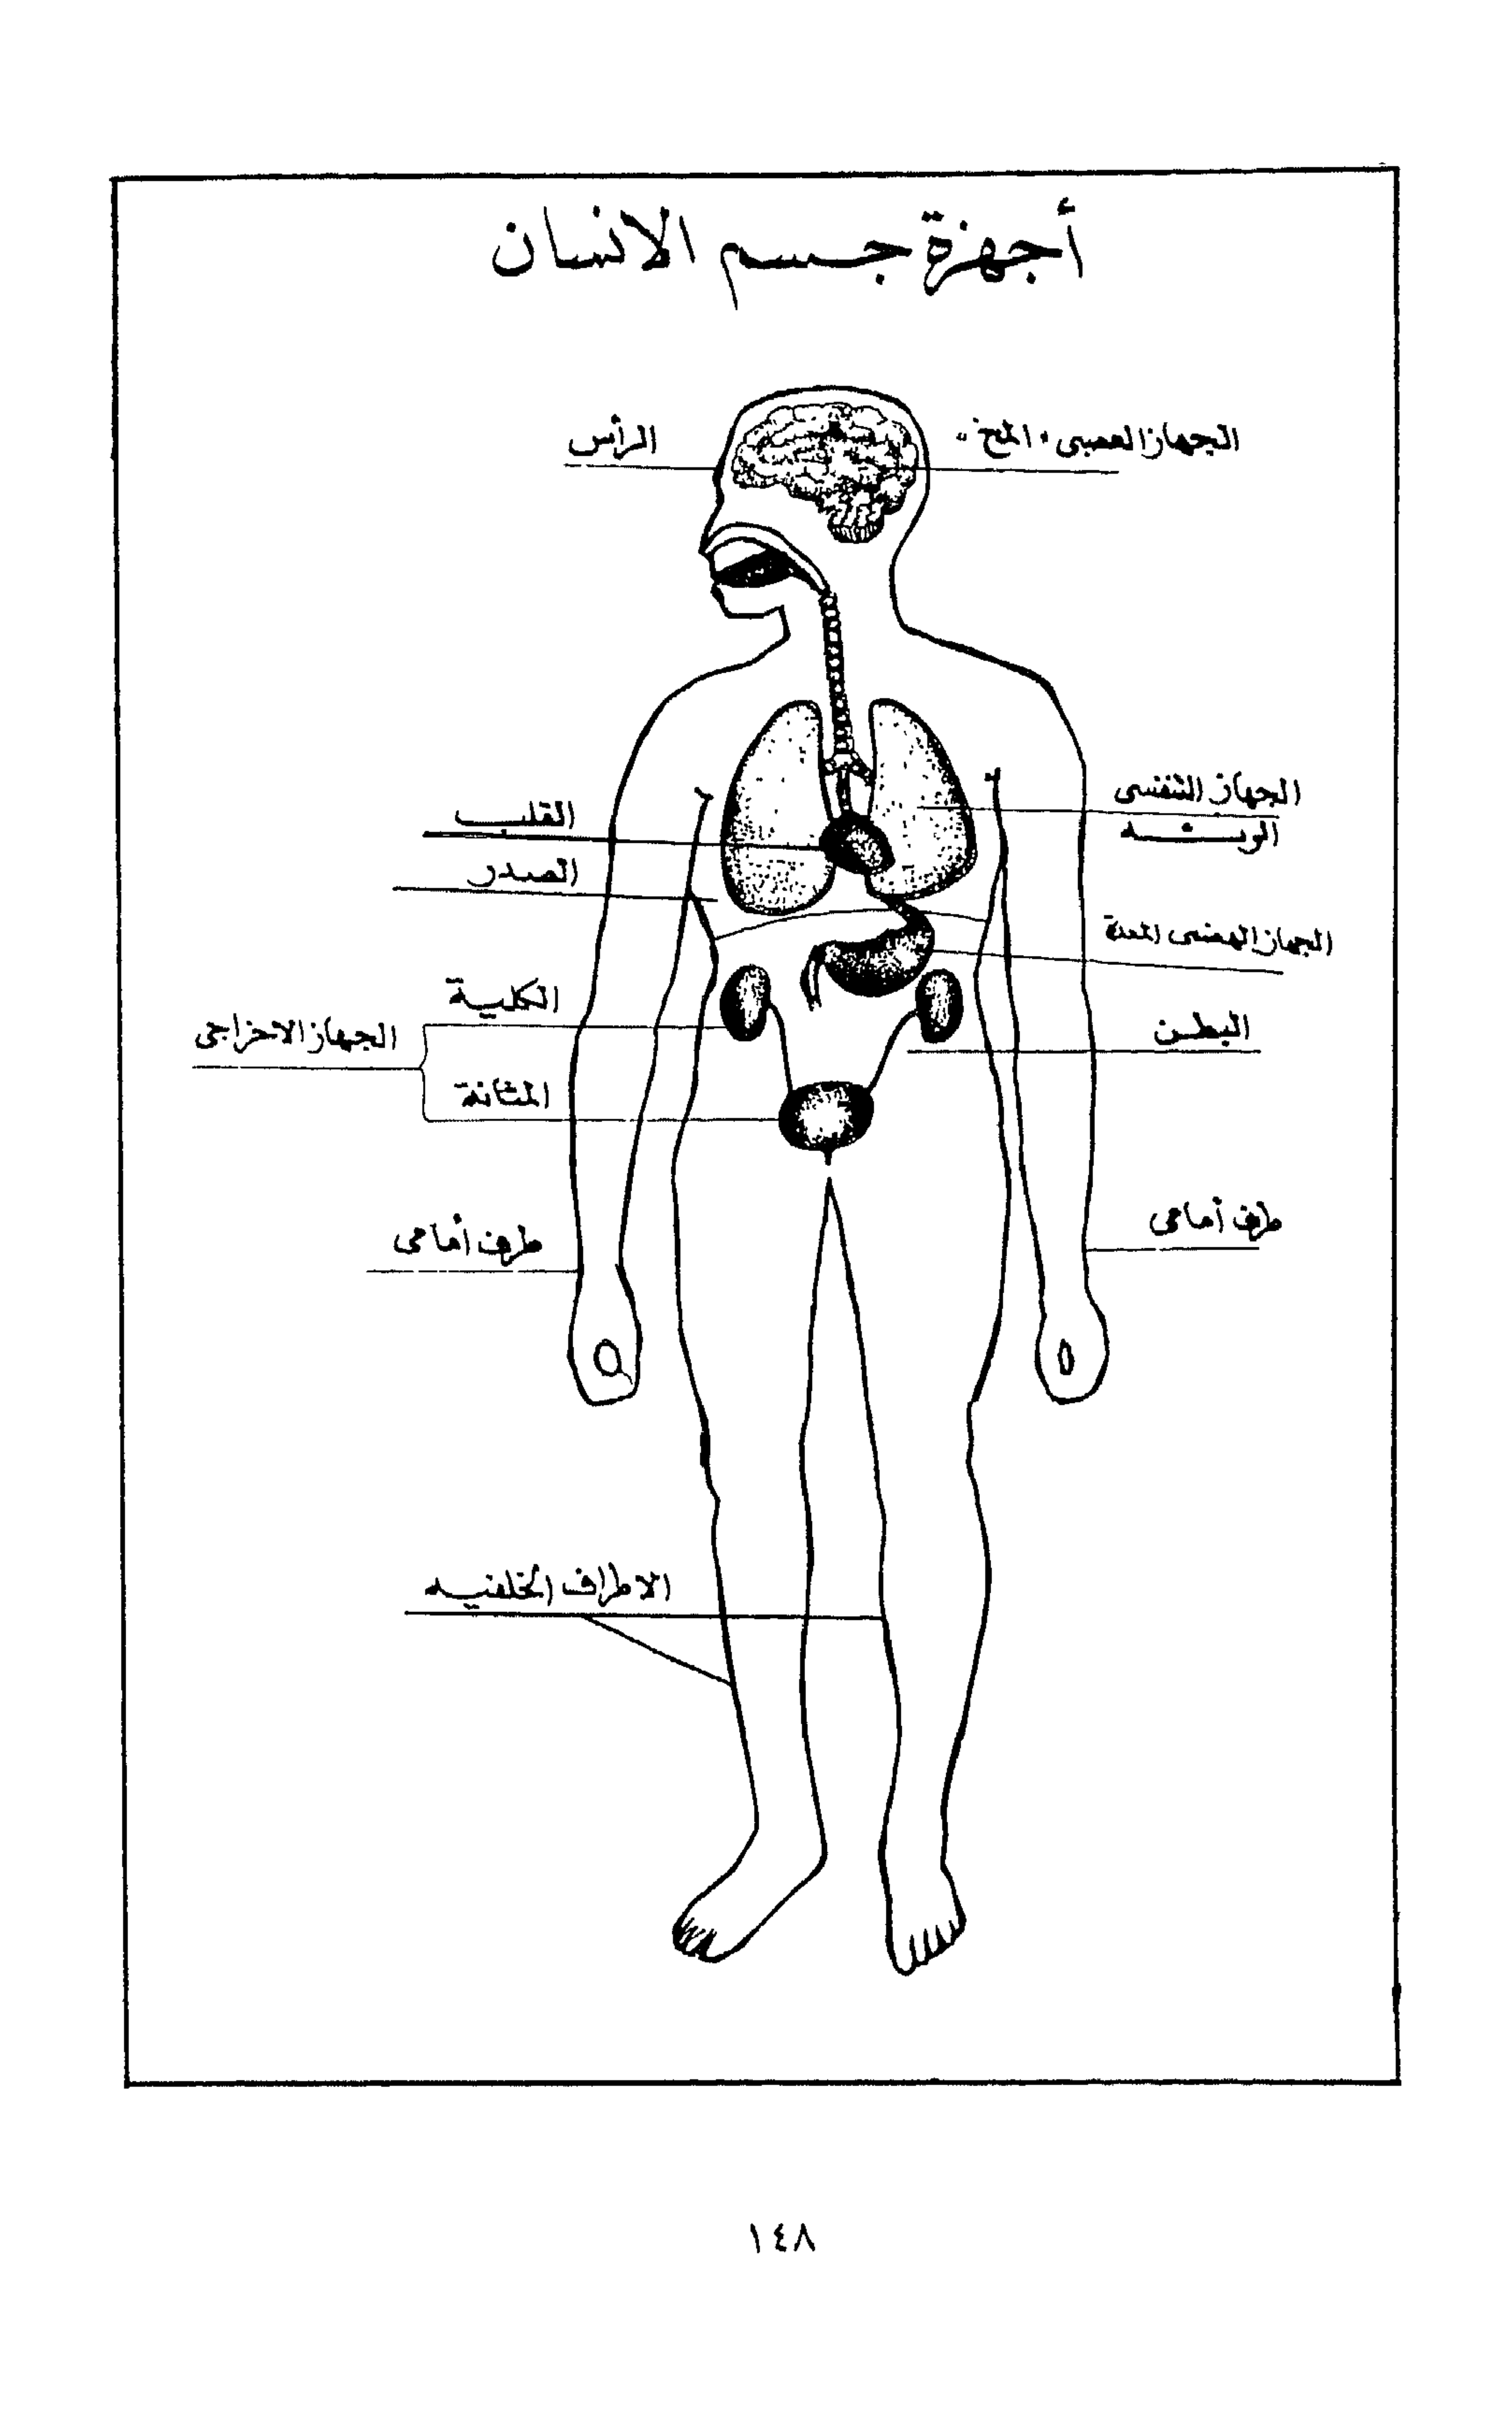 أجهزة جسم الانسان
الجهاز العصبى "المخ"
الرأس
الجهاز التنفسى
القلب
الصدر
الجهاز الهضمى المعدة
الكلية
الجهاز الاخراجى
البطن
المثانة
طرف أمامى
طرف أمامى
الاطراف الخلفيه
١٤٨